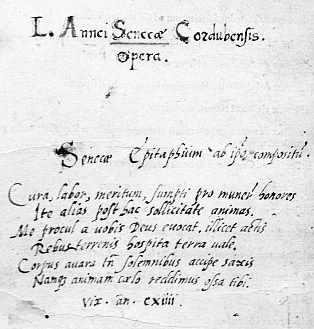 L. Annei Senecæ Cordubensis.
Opera.
Senecæ Epitaphium ab ipso compositū.
Cura, labor, meritum, sumpti pro munere honores
Ite alias post hac sollicitate animas.
Me procul a uobis Deus euocat, illicet actis
Rebus terrenis hospita terra uale.
Corpus auara tn̄ solemnibus accipe saxis
Nanq; animam cælo reddimus ossa tibi.
Vix. an. cxiiii.